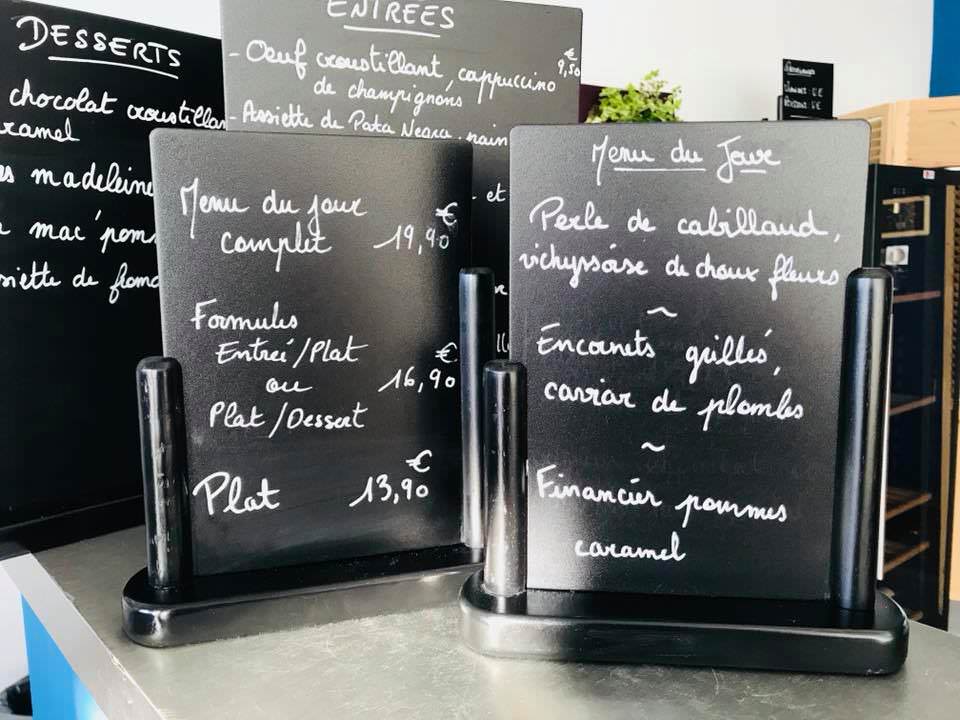 DESSERTS
chocolat croustillan
ramel
es madeleine
mac' pom
siette de from
ENTREES
- Oeuf croustillant, cappuccino
de champignons
€
9,50
- Assiette de Pata Negra, pain
et
Menu du jour
complet 19,90 €
Formules
Entreé/Plat
ou 16,90 €
Plat/Dessert
Plat 13,90 €
Menu du Jour
Perle de cabillaud,
vichyssoise de choux fleurs
~
Encornets grillés,
caviar de plombs
~
Financier pommes
caramel